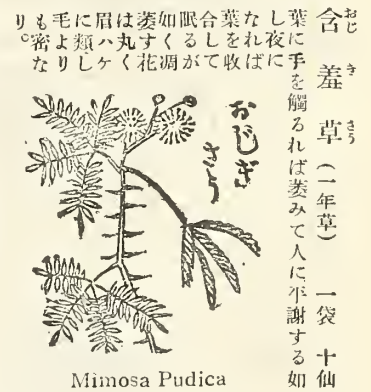 含羞草（一年草）　一袋　十仙
おじぎさう
葉に手を觸るれば萎みて人に平謝する如
し夜に
なれば
葉を收
合して
眠るが
如く凋
萎す花
は丸く
眉ハケ
に類し
毛より
も密な
り。
おじぎ
さう
Mimosa Pudica